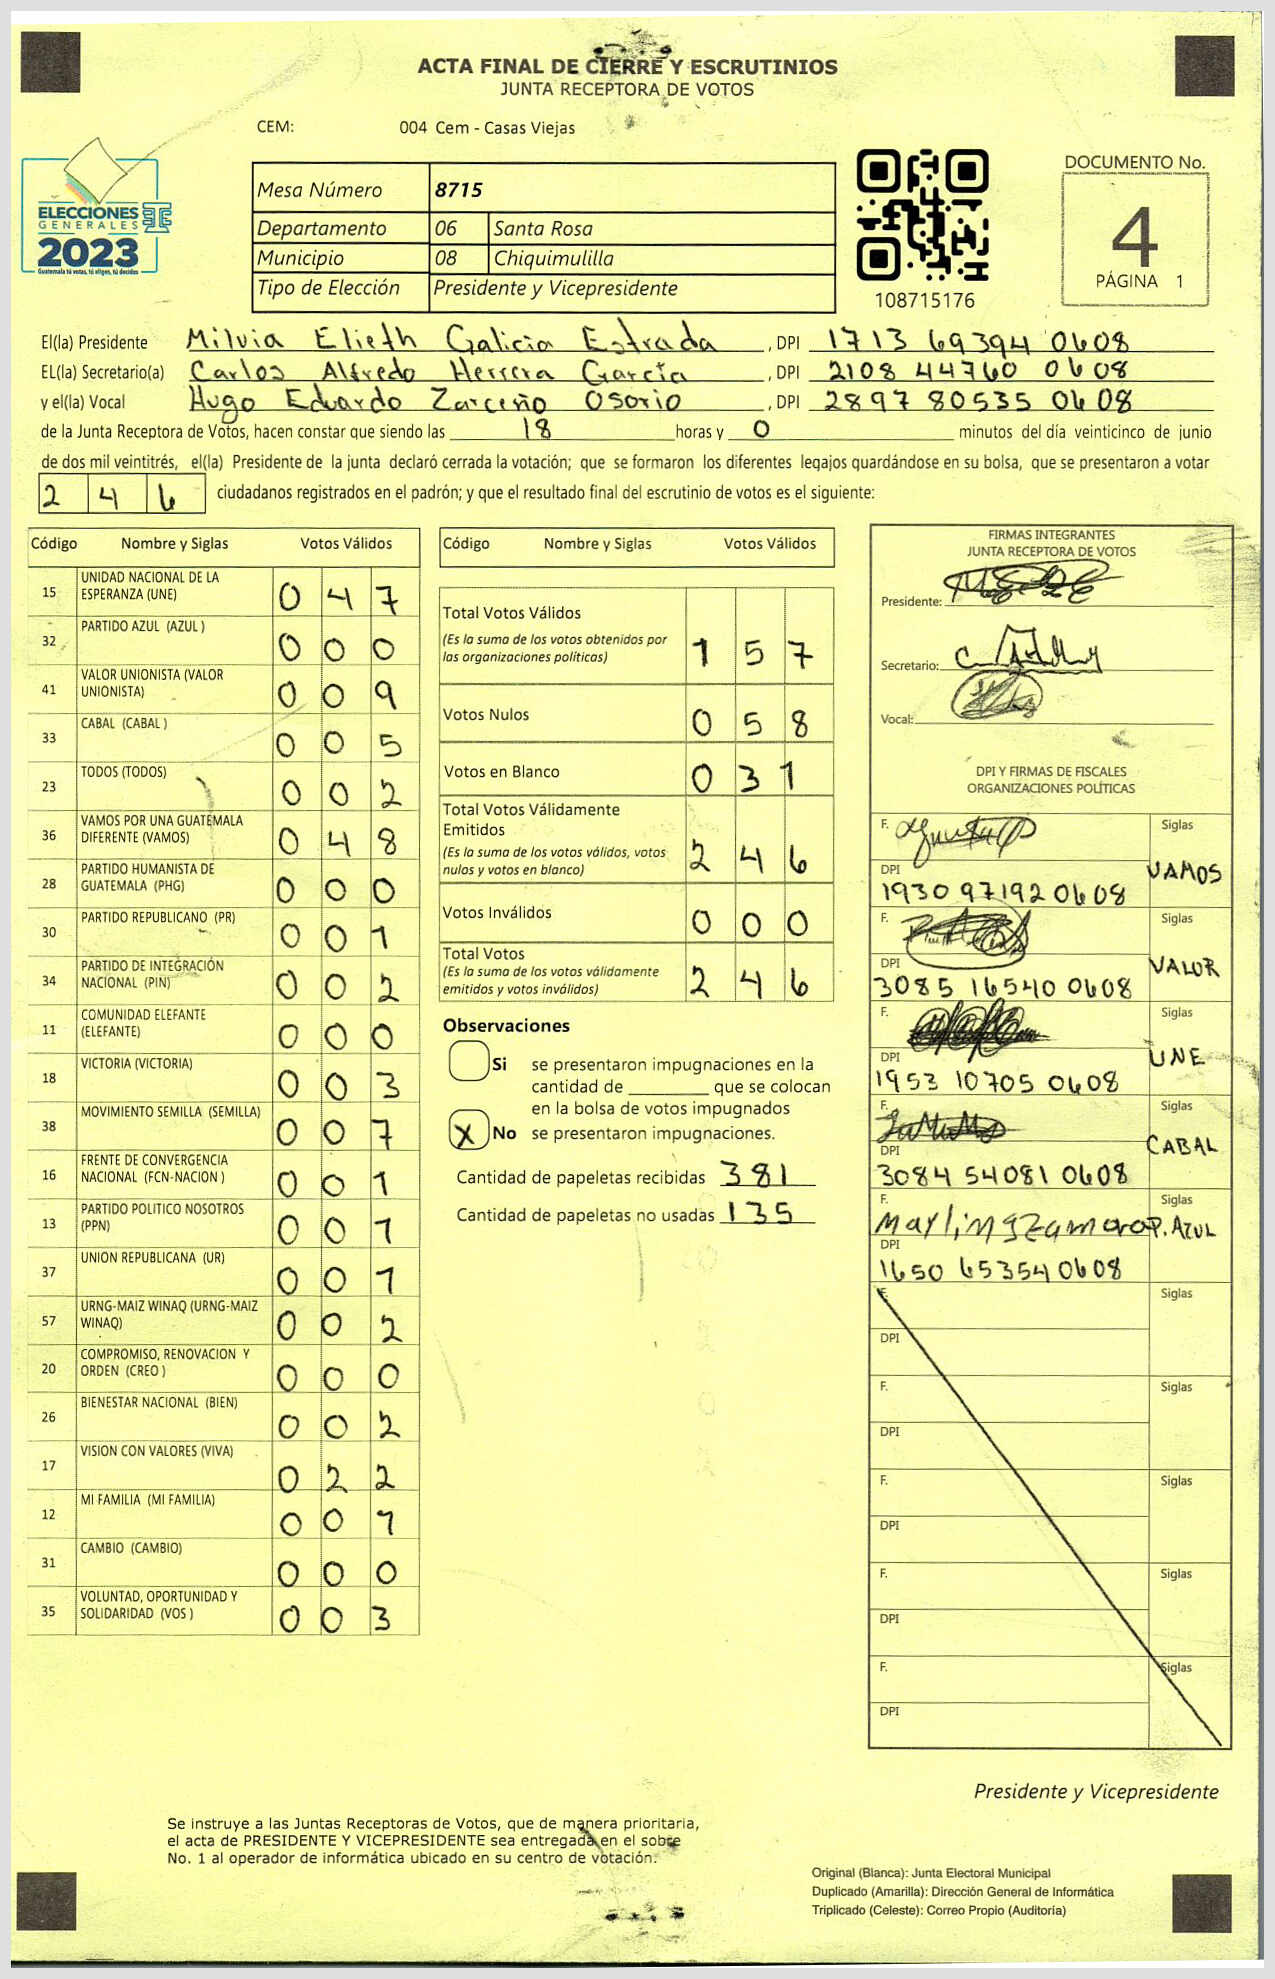 ACTA FINAL DE CIERRE Y ESCRUTINIOS
JUNTA RECEPTORA DE VOTOS
CEM: 004 Cem - Casas Viejas
ELECCIONES
GENERALES
2023
Guatemala tú votas, tú eliges, tú decides
Mesa Número 8715
Departamento 06 Santa Rosa
Municipio 08 Chiquimulilla
Tipo de Elección Presidente y Vicepresidente
108715176
DOCUMENTO No.
4
PÁGINA 1
El(la) Presidente Milvia Elieth Galicia Estrada , DPI 1713 69394 0608
EL(la) Secretario(a) Carlos Alfredo Herrera García , DPI 2108 44760 0608
y el(la) Vocal Hugo Eduardo Zarceño Osorio , DPI 2897 80535 0608
de la Junta Receptora de Votos, hacen constar que siendo las 18 horas y 0 minutos del día veinticinco de junio
de dos mil veintitrés, el(la) Presidente de la junta declaró cerrada la votación; que se formaron los diferentes legajos quardándose en su bolsa, que se presentaron a votar
2 4 6 ciudadanos registrados en el padrón; y que el resultado final del escrutinio de votos es el siguiente:
Código Nombre y Siglas Votos Válidos
15 UNIDAD NACIONAL DE LA
ESPERANZA (UNE) 0 4 7
32 PARTIDO AZUL (AZUL ) 0 0 0
41 VALOR UNIONISTA (VALOR
UNIONISTA) 0 0 9
33 CABAL (CABAL ) 0 0 5
23 TODOS (TODOS) 0 0 2
36 VAMOS POR UNA GUATEMALA
DIFERENTE (VAMOS) 0 4 8
28 PARTIDO HUMANISTA DE
GUATEMALA (PHG) 0 0 0
30 PARTIDO REPUBLICANO (PR) 0 0 1
34 PARTIDO DE INTEGRACIÓN
NACIONAL (PIN) 0 0 2
11 COMUNIDAD ELEFANTE
(ELEFANTE) 0 0 0
18 VICTORIA (VICTORIA) 0 0 3
38 MOVIMIENTO SEMILLA (SEMILLA) 0 0 7
16 FRENTE DE CONVERGENCIA
NACIONAL (FCN-NACION ) 0 0 1
13 PARTIDO POLITICO NOSOTROS
(PPN) 0 0 1
37 UNION REPUBLICANA (UR) 0 0 1
57 URNG-MAIZ WINAQ (URNG-MAIZ
WINAQ) 0 0 2
20 COMPROMISO, RENOVACION Y
ORDEN (CREO ) 0 0 0
26 BIENESTAR NACIONAL (BIEN) 0 0 2
17 VISION CON VALORES (VIVA) 0 2 2
12 MI FAMILIA (MI FAMILIA) 0 0 1
31 CAMBIO (CAMBIO) 0 0 0
35 VOLUNTAD, OPORTUNIDAD Y
SOLIDARIDAD (VOS ) 0 0 3
Código Nombre y Siglas Votos Válidos
Total Votos Válidos
(Es la suma de los votos obtenidos por
las organizaciones políticas) 1 5 7
Votos Nulos 0 5 8
Votos en Blanco 0 3 1
Total Votos Válidamente
Emitidos
(Es la suma de los votos válidos, votos
nulos y votos en blanco) 2 4 6
Votos Inválidos 0 0 0
Total Votos
(Es la suma de los votos válidamente
emitidos y votos inválidos) 2 4 6
Observaciones
Si se presentaron impugnaciones en la
cantidad de ________ que se colocan
en la bolsa de votos impugnados
X No se presentaron impugnaciones.
Cantidad de papeletas recibidas 381
Cantidad de papeletas no usadas 135
FIRMAS INTEGRANTES
JUNTA RECEPTORA DE VOTOS
Presidente:
Secretario:
Vocal:
DPI Y FIRMAS DE FISCALES
ORGANIZACIONES POLÍTICAS
F. Siglas
VAMOS
DPI
1930 97192 0608
F. Siglas
VALOR
DPI
3085 16540 0608
F. Siglas
UNE
DPI
1953 10705 0608
F. Siglas
CABAL
DPI
3084 54081 0608
F. Siglas
Maylingzamora P. AZUL
DPI
1650 65354 0608
F. Siglas
DPI
F. Siglas
DPI
F. Siglas
DPI
F. Siglas
DPI
F. Siglas
DPI
Presidente y Vicepresidente
Se instruye a las Juntas Receptoras de Votos, que de manera prioritaria,
el acta de PRESIDENTE Y VICEPRESIDENTE sea entregada en el sobre
No. 1 al operador de informática ubicado en su centro de votación.
Original (Blanca): Junta Electoral Municipal
Duplicado (Amarilla): Dirección General de Informática
Triplicado (Celeste): Correo Propio (Auditoría)